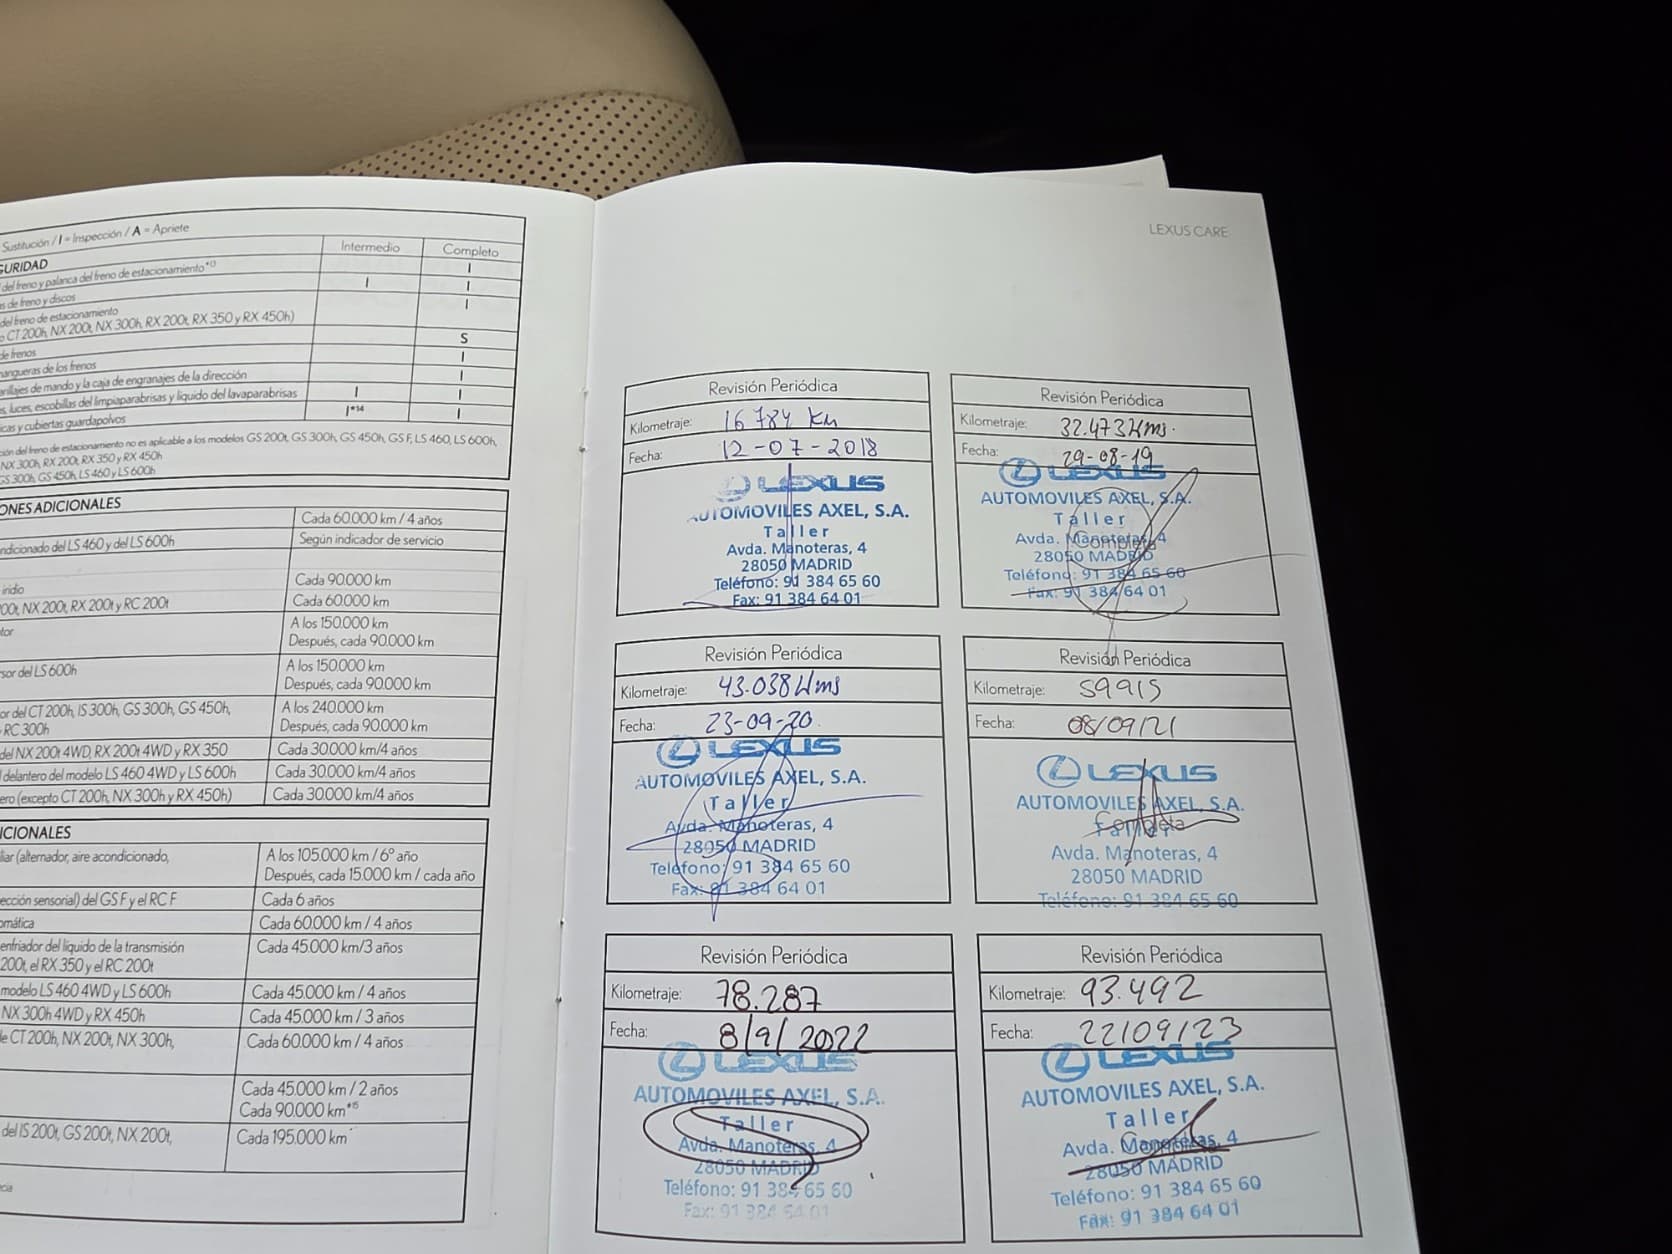 Sustitución / I = Inspección / A = Apriete
Intermedio Completo
URIDAD I
del freno y palanca del freno de estacionamiento I I
s de freno y discos I
del freno de estacionamiento
CT 200h, NX 200t, NX 300h, RX 200t, RX 350 y RX 450h)
de frenos S
mangueras de los frenos I
arillajes de mando y la caja de engranajes de la dirección I
s, luces, escobillas del limpiaparabrisas y líquido del lavaparabrisas I I
icas y cubiertas guardapolvos I*14 I
ión del freno de estacionamiento no es aplicable a los modelos GS 200t, GS 300h, GS 450h, GS F, LS 460, LS 600h,
NX 300h, RX 200t, RX 350 y RX 450h
GS 300h, GS 450h, LS 460 y LS 600h
ONES ADICIONALES
Cada 60.000 km / 4 años
ndicionado del LS 460 y del LS 600h Según indicador de servicio
iridio Cada 90.000 km
00t, NX 200t, RX 200t y RC 200t Cada 60.000 km
tor A los 150.000 km
Después, cada 90.000 km
sor del LS 600h A los 150.000 km
Después, cada 90.000 km
or del CT 200h, IS 300h, GS 300h, GS 450h, A los 240.000 km
RC 300h Después, cada 90.000 km
del NX 200t 4WD, RX 200t 4WD y RX 350 Cada 30.000 km/4 años
delantero del modelo LS 460 4WD y LS 600h Cada 30.000 km/4 años
ero (excepto CT 200h, NX 300h y RX 450h) Cada 30.000 km/4 años
ICIONALES
liar (alternador, aire acondicionado, A los 105.000 km / 6º año
Después, cada 15.000 km / cada año
ección sensorial) del GS F y el RC F Cada 6 años
omática Cada 60.000 km / 4 años
enfriador del líquido de la transmisión Cada 45.000 km/3 años
200t, el RX 350 y el RC 200t
modelo LS 460 4WD y LS 600h Cada 45.000 km / 4 años
NX 300h 4WD y RX 450h Cada 45.000 km / 3 años
e CT 200h, NX 200t, NX 300h, Cada 60.000 km / 4 años
Cada 45.000 km / 2 años
Cada 90.000 km*15
del IS 200t, GS 200t, NX 200t, Cada 195.000 km
cia
LEXUS CARE
Revisión Periódica
Kilometraje: 16 784 Km
Fecha: 12-07-2018
LEXUS
AUTOMOVILES AXEL, S.A.
Taller
Avda. Manoteras, 4
28050 MADRID
Teléfono: 91 384 65 60
Fax: 91 384 64 01
Revisión Periódica
Kilometraje: 32.473 Kms.
Fecha: 29-08-19
LEXUS
AUTOMOVILES AXEL, S.A.
Taller
Avda. Manoteras, 4
Completa
28050 MADRID
Teléfono: 91 384 65 60
Fax: 91 384 64 01
Revisión Periódica
Kilometraje: 43.038 Kms
Fecha: 23-09-20
LEXUS
AUTOMOVILES AXEL, S.A.
Taller
Avda. Manoteras, 4
28050 MADRID
Teléfono: 91 384 65 60
Fax: 91 384 64 01
Revisión Periódica
Kilometraje: 59915
Fecha: 08/09/21
LEXUS
AUTOMOVILES AXEL, S.A.
Taller
Completa
Avda. Manoteras, 4
28050 MADRID
Teléfono: 91 384 65 60
Revisión Periódica
Kilometraje: 78.287
Fecha: 8/9/2022
LEXUS
AUTOMOVILES AXEL, S.A.
Taller
Avda. Manoteras, 4
28050 MADRID
Teléfono: 91 384 65 60
Fax: 91 384 64 01
Revisión Periódica
Kilometraje: 93.492
Fecha: 22/09/23
LEXUS
AUTOMOVILES AXEL, S.A.
Taller
Avda. Manoteras, 4
Completa
28050 MADRID
Teléfono: 91 384 65 60
Fax: 91 384 64 01